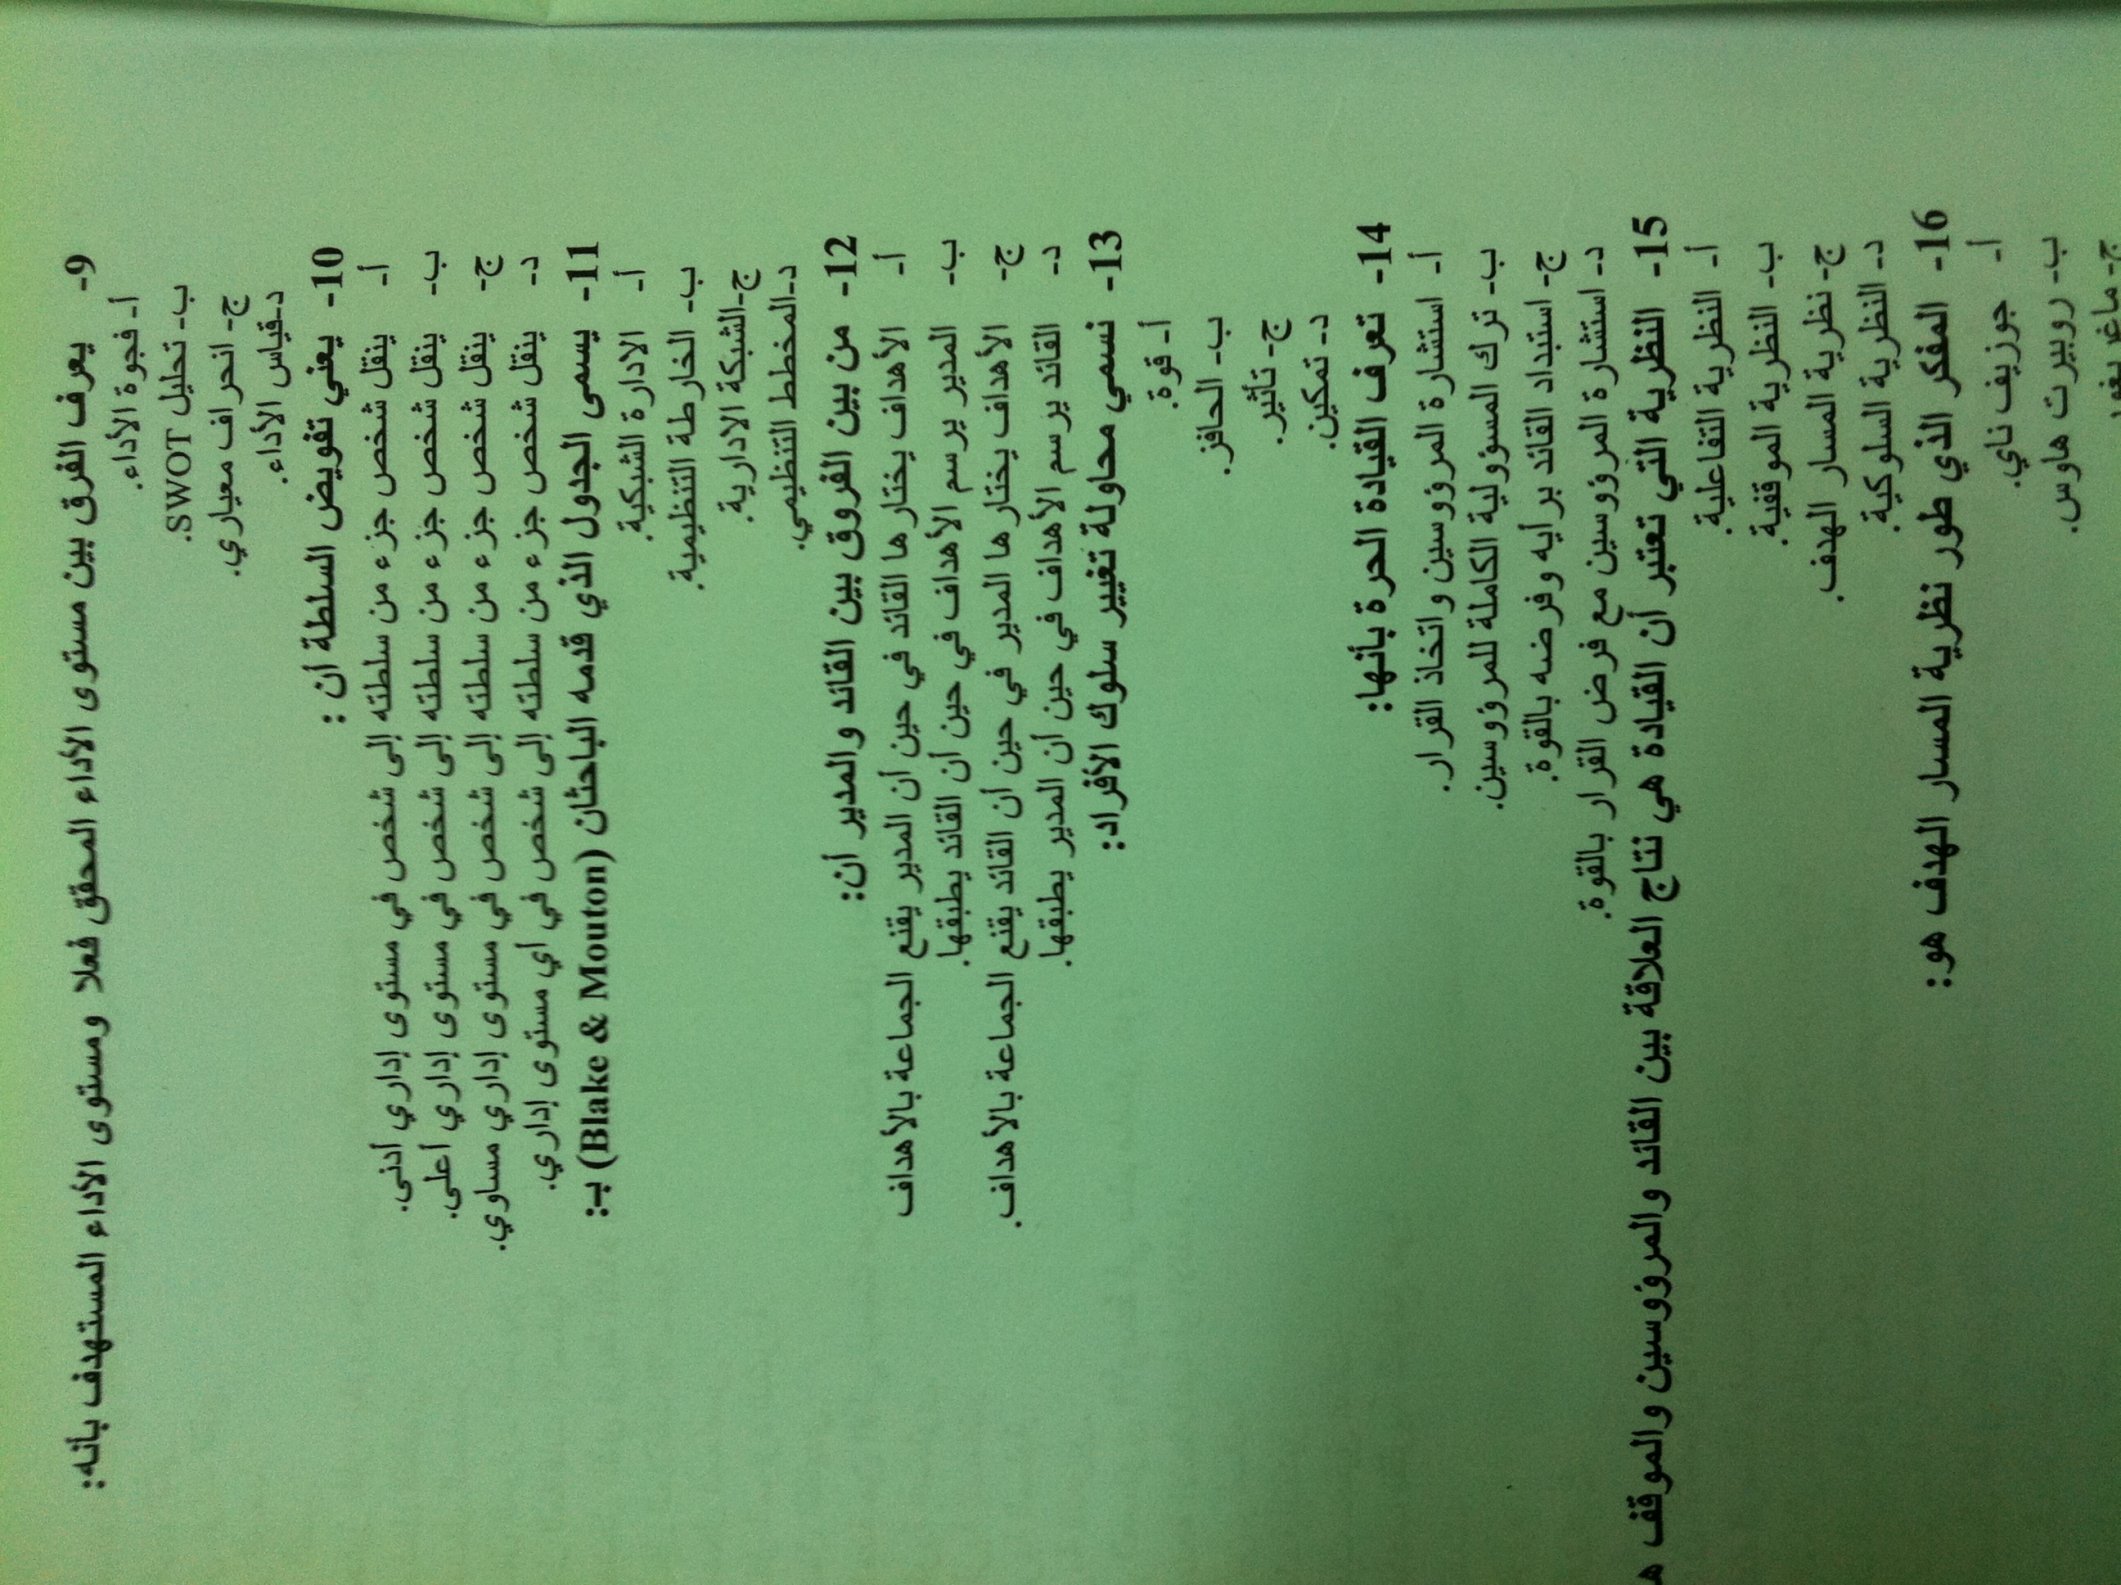 9- يعرف الفرق بين مستوى الأداء المحقق فعلا ومستوى الأداء المستهدف بأنه:
أ- فجوة الأداء.
ب- تحليل SWOT.
ج- انحراف معياري.
د-قياس الأداء.
10- يعني تفويض السلطة ان :
أ- ينقل شخص جزء من سلطته إلى شخص في مستوى إداري أدنى.
ب- ينقل شخص جزء من سلطته إلى شخص في مستوى إداري أعلى.
ج- ينقل شخص جزء من سلطته إلى شخص في مستوى إداري مساوي.
د- ينقل شخص جزء من سلطته إلى شخص في أي مستوى إداري.
11- يسمى الجدول الذي قدمه الباحثان (Blake & Mouton) بـ:
أ- الادارة الشبكية.
ب- الخارطة التنظيمية.
ج-الشبكة الادارية.
د-المخطط التنظيمي.
12- من بين الفروق بين القائد والمدير أن:
أ- الأهداف يختارها القائد في حين أن المدير يقنع الجماعة بالأهداف
ب- المدير يرسم الأهداف في حين أن القائد يطبقها.
ج- الأهداف يختارها المدير في حين أن القائد يقنع الجماعة بالأهداف.
د- القائد يرسم الأهداف في حين أن المدير يطبقها.
13- نسمي محاولة تغيير سلوك الأفراد:
أ- قوة.
ب- الحافز.
ج- تأثير.
د- تمكين.
14- تعرف القيادة الحرة بأنها:
أ- استشارة المرؤوسين واتخاذ القرار.
ب- ترك المسؤولية الكاملة للمرؤوسين.
ج- استبداد القائد برأيه وفرضه بالقوة.
د- استشارة المرؤوسين مع فرض القرار بالقوة.
15- النظرية التي تعتبر أن القيادة هي نتاج العلاقة بين القائد والمرؤوسين والموقف
أ- النظرية التفاعلية.
ب- النظرية الموقفية.
ج- نظرية المسار الهدف.
د- النظرية السلوكية.
16- المفكر الذي طور نظرية المسار الهدف هو:
أ- جوزيف ناي.
ب- روبيرت هاوس.